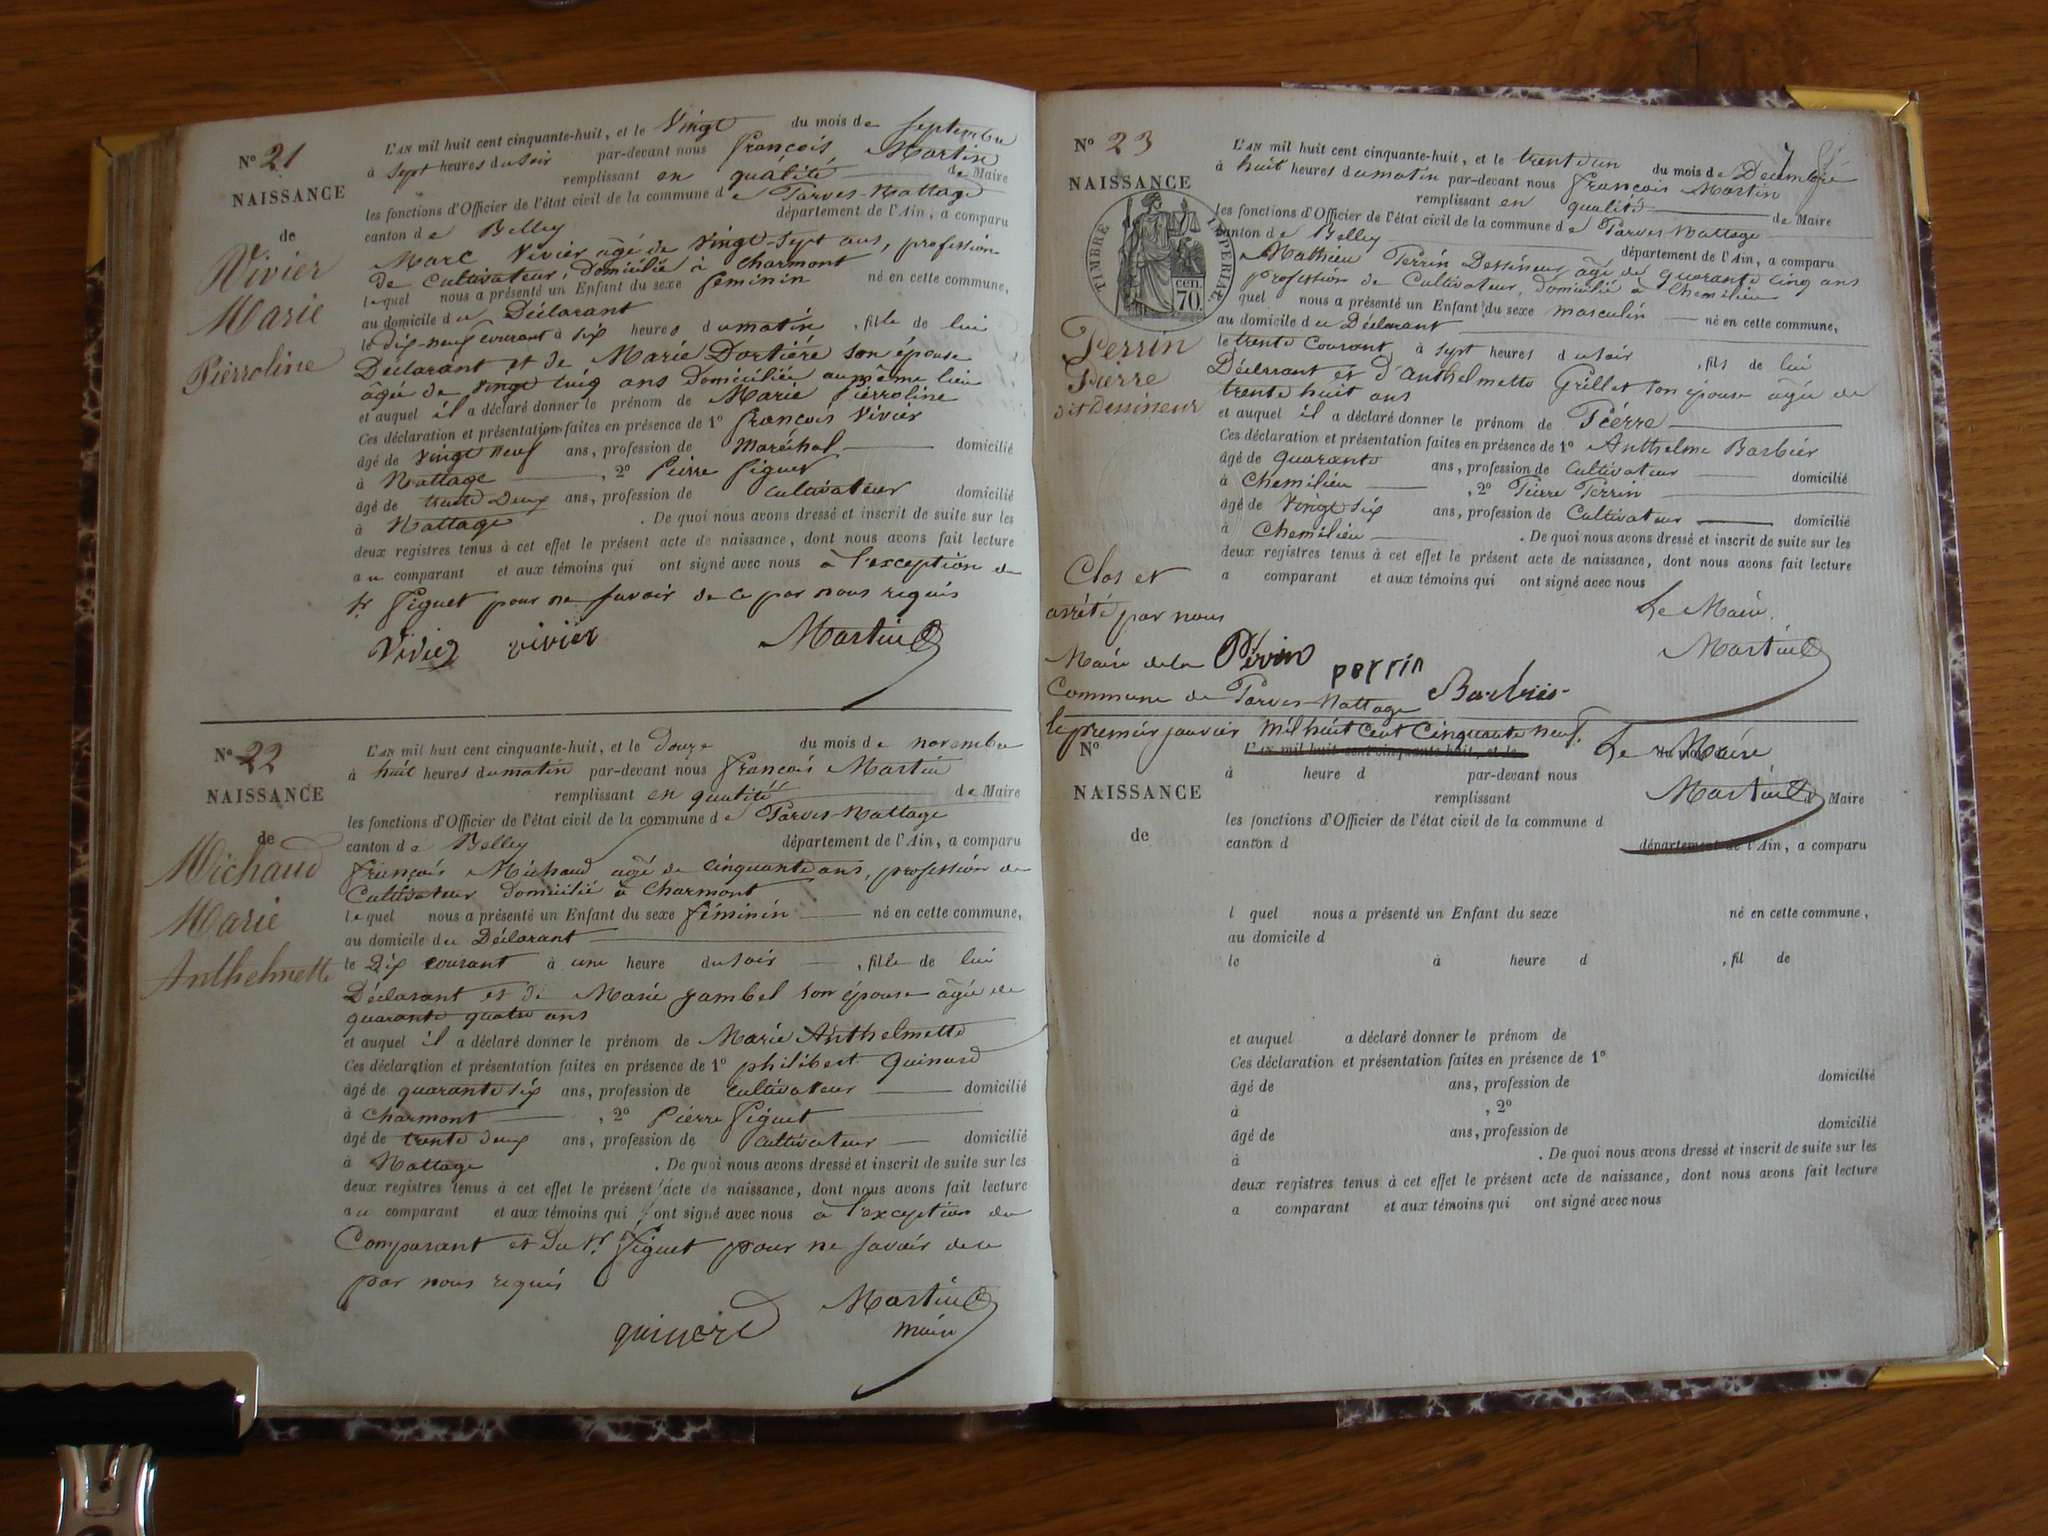 N° 21
NAISSANCE
de
Vivier
Marie
Pierroline
L'AN mil huit cent cinquante-huit, et le Vingt du mois de Septembre
à sept heures du soir par-devant nous françois Martin
remplissant en qualité de Maire
les fonctions d'Officier de l'état civil de la commune de Parves-Nattage
canton de Belley département de l'Ain, a comparu
Marc Vivier âgé de vingt-sept ans, profession
de Cultivateur, domicilié à Charmont
lequel nous a présenté un Enfant du sexe féminin né en cette commune,
au domicile du Déclarant
le dix-neuf courant à six heures du matin, fille de lui
Déclarant et de Marie Dortière son épouse
âgée de vingt cinq ans domiciliée au même lieu
et auquel il a déclaré donner le prénom de Marie Pierroline
Ces déclaration et présentation faites en présence de 1° françois Vivier
âgé de vingt neuf ans, profession de Maréchal domicilié
à Nattage, 2° Pierre Piguet
âgé de trente deux ans, profession de cultivateur domicilié
à Nattage. De quoi nous avons dressé et inscrit de suite sur les
deux registres tenus à cet effet le présent acte de naissance, dont nous avons fait lecture
au comparant et aux témoins qui ont signé avec nous à l'exception du
Sr Piguet pour ne savoir de ce par nous requis
Vivier vivier Martin
N° 22
NAISSANCE
de
Michaud
Marie
Anthelmette
L'AN mil huit cent cinquante-huit, et le douze du mois de novembre
à huit heures du matin par-devant nous françois Martin
remplissant en qualité de Maire
les fonctions d'Officier de l'état civil de la commune de Parves-Nattage
canton de Belley département de l'Ain, a comparu
françois Michaud âgé de cinquante ans, profession de
Cultivateur domicilié à Charmont
lequel nous a présenté un Enfant du sexe féminin né en cette commune,
au domicile du Déclarant
le Dix courant à une heure du soir, fille de lui
Déclarant et de Marie Jambel son épouse âgée de
quarante quatre ans
et auquel il a déclaré donner le prénom de Marie Anthelmette
Ces déclaration et présentation faites en présence de 1° philibert Guinard
âgé de quarante six ans, profession de cultivateur domicilié
à Charmont, 2° Pierre Piguet
âgé de trente deux ans, profession de cultivateur domicilié
à Nattage. De quoi nous avons dressé et inscrit de suite sur les
deux registres tenus à cet effet le présent acte de naissance, dont nous avons fait lecture
au comparant et aux témoins qui ont signé avec nous à l'exception du
Comparant et du Sr Piguet pour ne savoir de ce
par nous requis
Martin
maire
N° 23
NAISSANCE
TIMBRE IMPERIAL
70 cen.
Perrin
Pierre
dit Dessineur
L'AN mil huit cent cinquante-huit, et le trente un du mois de Décembre
à huit heures du matin par-devant nous françois Martin
remplissant en qualité de Maire
les fonctions d'Officier de l'état civil de la commune de Parves Nattage
canton de Belley département de l'Ain, a comparu
Mathieu Perrin Dessineur âgé de quarante cinq ans
profession de Cultivateur, domicilié à Chemilieu
quel nous a présenté un Enfant du sexe masculin né en cette commune,
au domicile du Déclarant
le trente Courant à sept heures du soir, fils de lui
Déclarant et d'Anthelmette Grillet son épouse âgée de
trente huit ans
et auquel il a déclaré donner le prénom de Pierre
Ces déclaration et présentation faites en présence de 1° Anthelme Barbier
âgé de quarante ans, profession de cultivateur domicilié
à Chemilieu, 2° Pierre Perrin
âgé de vingt six ans, profession de Cultivateur domicilié
à Chemilieu. De quoi nous avons dressé et inscrit de suite sur les
deux registres tenus à cet effet le présent acte de naissance, dont nous avons fait lecture
a comparant et aux témoins qui ont signé avec nous
Le Maire.
Martin
Perrin perrin Barbier
Clos et
arrêté par nous
Maire de la
Commune de Parves-Nattage
le premier janvier mil huit Cent Cinquante neuf.
Le Maire
Martin
N°
NAISSANCE
de
L'AN mil huit cent cinquante-huit, et le du mois d
à heure d par-devant nous
remplissant d Maire
les fonctions d'Officier de l'état civil de la commune d
canton d département de l'Ain, a comparu
l quel nous a présenté un Enfant du sexe né en cette commune,
au domicile d
le à heure d , fil de
et auquel a déclaré donner le prénom de
Ces déclaration et présentation faites en présence de 1°
âgé de ans, profession de domicilié
à , 2°
âgé de ans, profession de domicilié
à . De quoi nous avons dressé et inscrit de suite sur les
deux registres tenus à cet effet le présent acte de naissance, dont nous avons fait lecture
a comparant et aux témoins qui ont signé avec nous